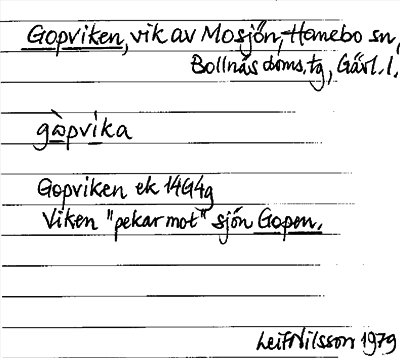 Gopviken, vik av Mosjön, Hanebo sn,
Bollnäs doms.tg, Gävl.l.
gòpvika
Gopviken ek 14G4g
Viken "pekar mot" sjön Gopen.
Leif Nilsson 1979